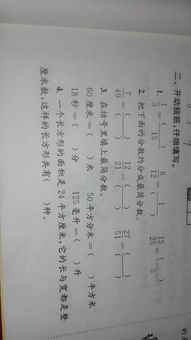 二、开动脑筋,仔细填写。
1. ( )/15 6/( ) 15/25 = ( )/5
2. 把下面的分数约分成最简分数。
7/49 = ( )/( ) 12/21 = ( )/( ) 27/51 = ( )/( )
3. 在括号里填上最简分数。
60厘米=( )米 50平方分米=( )平方米
18秒=( )分 125毫升=( )升
4. 一个长方形的面积是24平方厘米,它的长与宽都是整
厘米数,这样的长方形共有( )种。